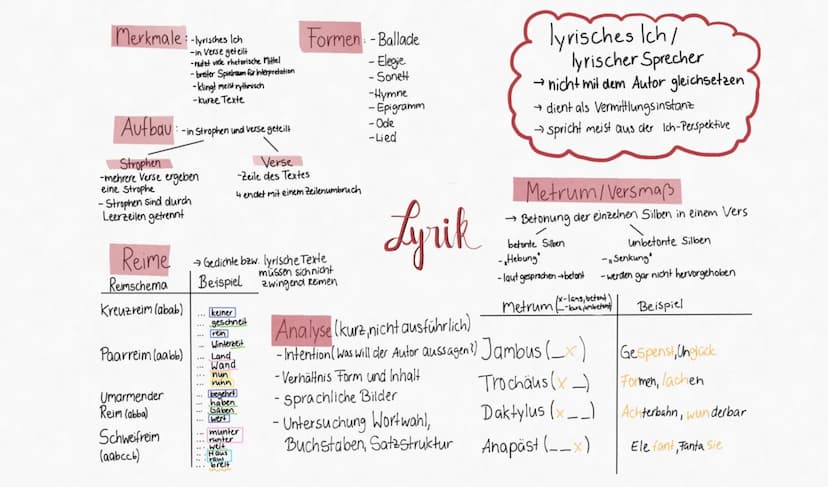 Merkmale: -lyrisches Ich
-in Verse geteilt
-nutzt viele rhetorische Mittel
-breiter Spielraum für Interpretation
-klingt meist rythmisch
-kurze Texte
Formen: -Ballade
-Elegie
-Sonett
-Hymne
-Epigramm
-Ode
-Lied
lyrisches Ich/
lyrischer Sprecher
→ nicht mit dem Autor gleichsetzen
→ dient als Vermittlungsinstanz
→ spricht meist aus der Ich-Perspektive
Aufbau: -in Strophen und Verse geteilt
Strophen
-mehrere Verse ergeben
eine Strophe
-Strophen sind durch
Leerzeilen getrennt
Verse
-Zeile des Textes
↳ endet mit einem Zeilenumbruch
Lyrik
Metrum/Versmaß
→ Betonung der einzelnen Silben in einem Vers
betonte Silben
-„Hebung"
-laut gesprochen→betont
unbetonte Silben
-„Senkung"
-werden gar nicht hervorgehoben
Reime
→ Gedichte bzw. lyrische Texte
müssen sich nicht
zwingend reimen
Reimschema Beispiel
Kreuzreim (abab)
... keiner
... geschneit
... rein
... Winterzeit
Paarreim (aabb)
... Land
... Wand
... nun
... ruhn
Umarmender
Reim (abba)
... begehrt
... haben
... Gaben
... wert
Schweifreim
(aabccb)
... munter
... runter
... weit
... Haus
... raus
... breit
Analyse (kurz, nicht ausführlich)
-Intention (Was will der Autor aussagen?)
-Verhältnis Form und Inhalt
-sprachliche Bilder
-Untersuchung Wortwahl,
Buchstaben, Satzstruktur
Metrum (x-lang, betont
_-kurz, unbetont) Beispiel
Jambus (_x) Gespenst, Unglück
Trochäus (x_) Formen, lachen
Daktylus (x__) Achterbahn, wunderbar
Anapäst (__x) Elefant, Fantasie